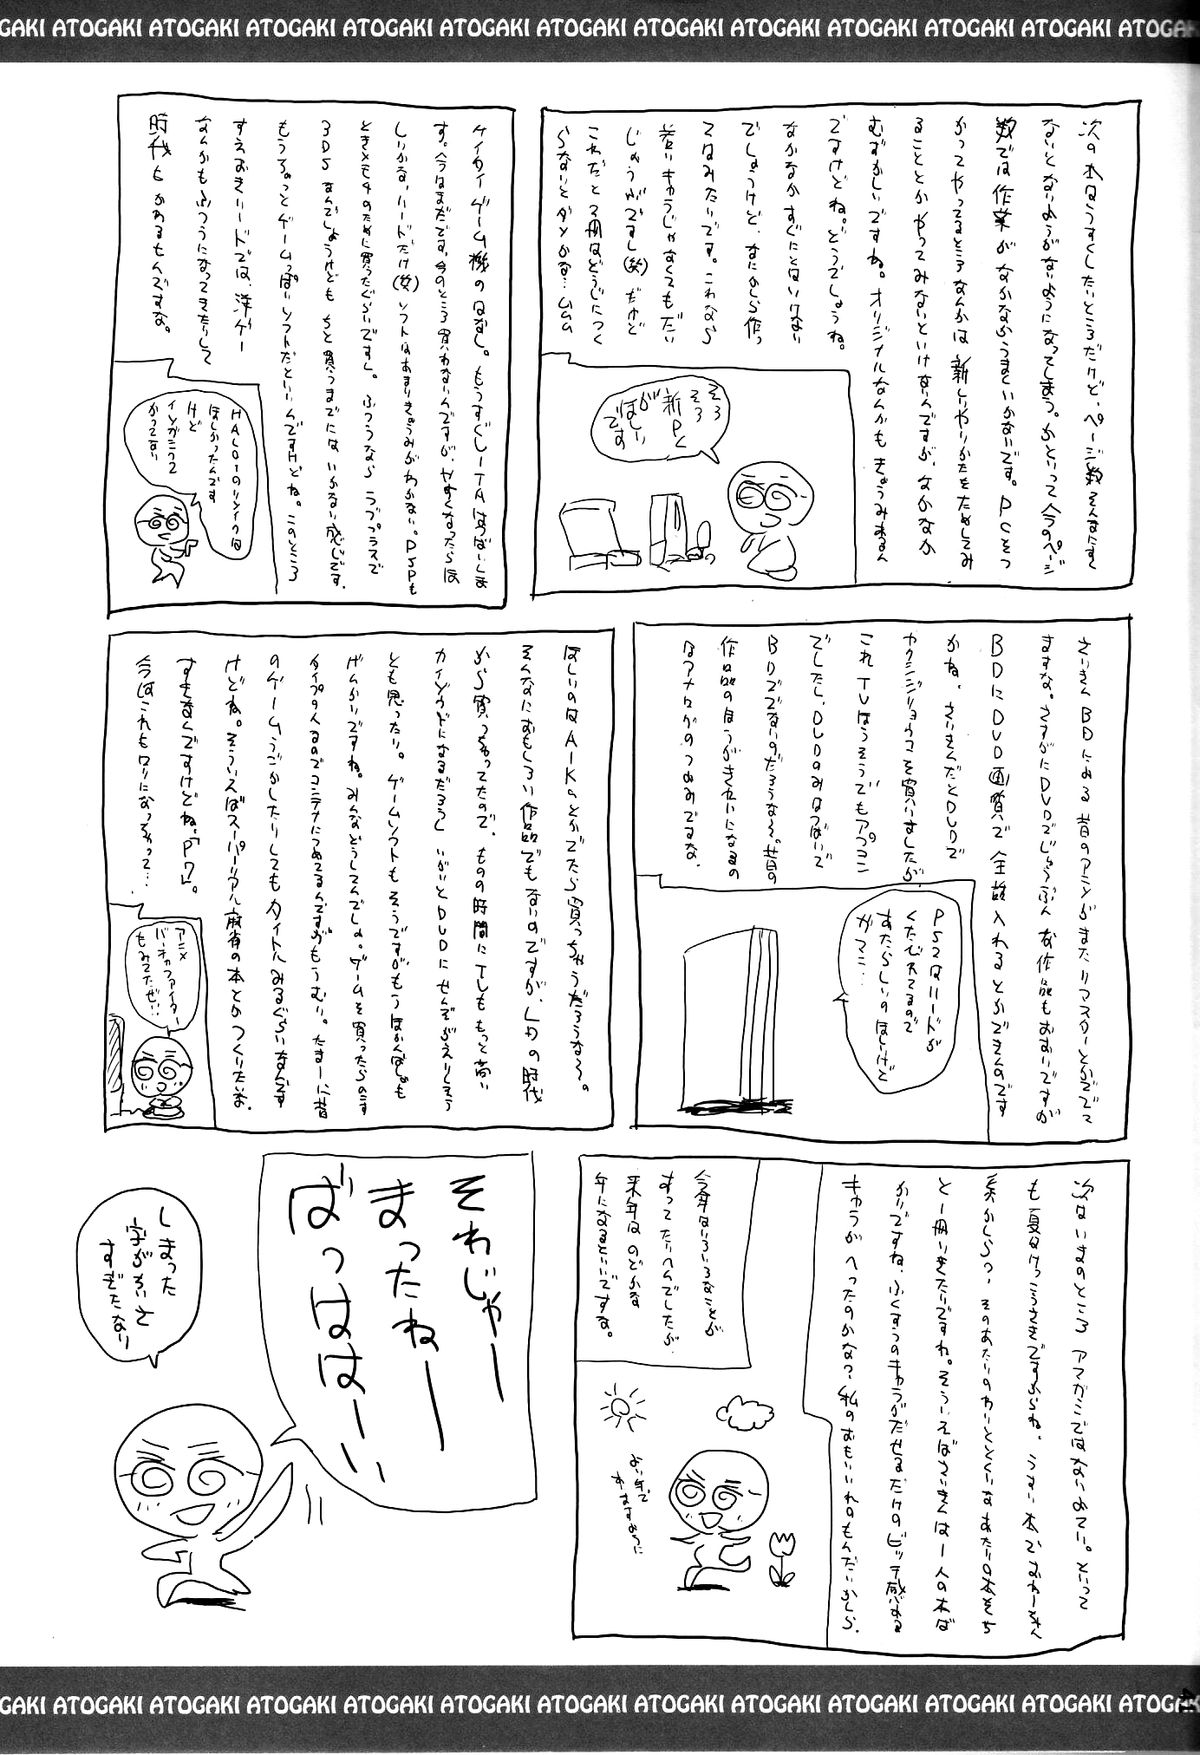 GAKI ATOGAKI ATOGAKI ATOGAKI ATOGAKI ATOGAKI ATOGAKI ATOGAKI ATOGAKI ATOGAKI ATOGAKI ATOGAKI ATOGA
次の本はうすくしたいところだけど、ページ数そんなにすく
ないとないようがないようになってしまう。かといって今のページ
数では作業がなかなかうまくいかないです。PCをつ
かってやってるところなんかは新しいやりかたをためしてみ
ることとかやってみないといけないんですが、なかなか
むずかしいですね。オリジナルなんかもきょうみあるん
ですけどね。どうでしょうね。
なかなかすぐにとはいけない
でしょうけど、なにかしら作っ
てはみたいです。これなら
若いキャラじゃなくてもだい
じょうぶですし(笑)だけど
これだと2冊はどうじにつく
らないとダメかな…ムムム
そろ
そろ
新PC
が
ほしい
です
ケイタイゲーム機のはなし。もうすぐVITAはつばいしま
す。今はまだです。今のところ買わないんですが、やすくなったらほ
しいかな、ハードだけ(笑)ソフトはあまりきょうみがわかない。PSPも
ときメモ4のために買ったぐらいですし。ふつうならラブプラスで
3DSなんでしょうけども ちと買うまでにはいかない感じです。
もうちょっとゲームっぽいソフトだといいんですけどね。このところ
すえおきハードでは、洋ゲー
なんかもふつうになってきたりして
時代もかわるもんですな。
HALO1のリメイクは
ほしかったんです
けど
インファマス2
かってない
さいきんBDによる昔のアニメがまたリマスターとかででて
ますな。さすがにDVDでじゅうぶんな作品もおおいですが
BDにDVD画質で全話入れるとかできんのです
かね。さいきんだとDVDで
ヤクシジョウマコを買いましたが、
これTVほうそうでもアプコン
でしたし、DVDのみはつばいで
BDででないのだろうな〜。昔の
作品のほうがきれいになるの
はアナログのつよみですな。
PS2はハードが
くたびれてるので
あたらしいのほしいけど
ガマン…
ほしいのはAIKaとかでたら買っちゃうだろうな〜。
そんなにおもしろい作品でもないのですが、LDの時代
から買っちゃってたので、もの時間にしてももっと高い
カイゾウドになるだろうし いがいとDVDにせんぞがえりしそう
とも思ったり。ゲームソフトもそうですがもうほかんばしょも
げんかいですね。みんなどうしてんでしょ。ゲームを買ったらのこす
タイプの人なのでコンテナにつめてるんですがもうむり。たまーに昔
のゲームうごかしたりしてもタイトルみるぐらいなんです
けどね。そういえばスーパーリアル麻雀の本とかつくりたいな、
すきなんですけどね、「P7」。
今はこれもロリになっちゃって…
アニメ
バーチャファイター
もみてたぜ!!
次はいまのところアマガミではないよてい。といって
も夏はけっこうさきですからね。うすい本でむかーしの
系かしらっ、そのあたりのわりととくいなあたりの本をち
と一冊いきたいですね。そういえばさいきんは一人の本ば
かりですね、ふくすうのキャラがだせるだけのビッチ感ある
キャラがへったのかな?私のおもいいれのもんだいかしら。
今年はいろいろなことが
すってたいへんでしたが、
来年はのどかな
年になるといいですな。
よい年で
ありますように
それじゃー
まったねー
ばっはは〜い
しまった
字がかいと
すぎたなり
GAKI ATOGAKI ATOGAKI ATOGAKI ATOGAKI ATOGAKI ATOGAKI ATOGAKI ATOGAKI ATOGAKI ATOGAKI ATOGAKI ATOGA